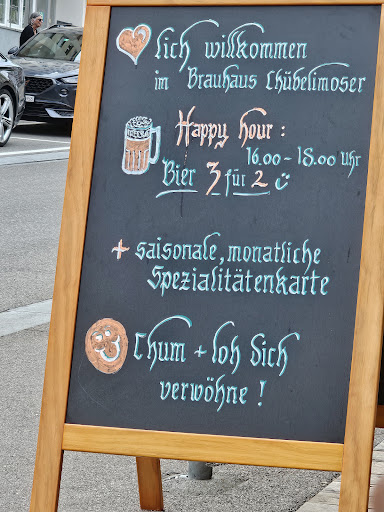 lich willkommen
im Brauhaus Chübelimoser
Happy hour :
16.00 - 18.00 uhr
Bier 3 für 2
+ saisonale, monatliche
Spezialitätenkarte
Chum + loh Dich
verwöhne !